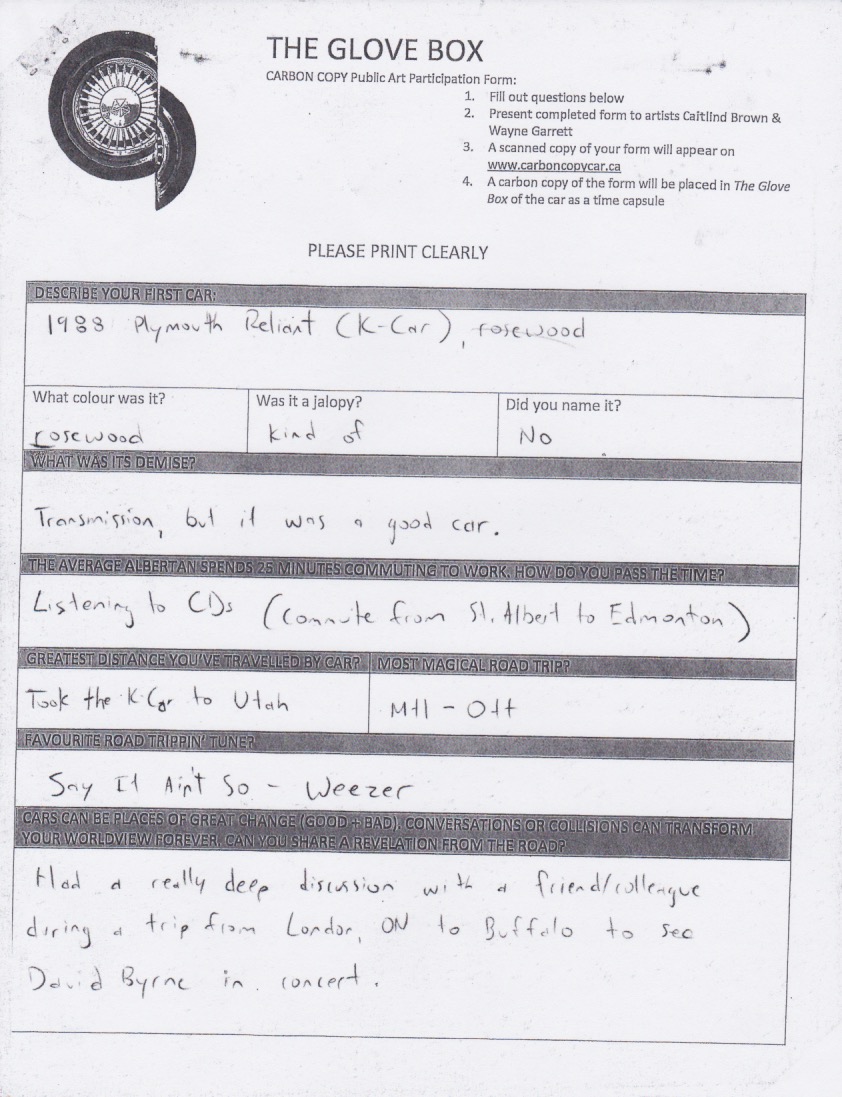 THE GLOVE BOX
CARBON COPY Public Art Participation Form:
1. Fill out questions below
2. Present completed form to artists Caitlind Brown &
Wayne Garrett
3. A scanned copy of your form will appear on
www.carboncopycar.ca
4. A carbon copy of the form will be placed in The Glove
Box of the car as a time capsule
PLEASE PRINT CLEARLY
DESCRIBE YOUR FIRST CAR:
1988 Plymouth Reliant (K-Car), rosewood
What colour was it? Was it a jalopy? Did you name it?
rosewood Kind of No
WHAT WAS ITS DEMISE?
Transmission, but it was a good car.
THE AVERAGE ALBERTAN SPENDS 25 MINUTES COMMUTING TO WORK. HOW DO YOU PASS THE TIME?
Listening to CDs (commute from St. Albert to Edmonton)
GREATEST DISTANCE YOU'VE TRAVELLED BY CAR? MOST MAGICAL ROAD TRIP?
Took the K-Car to Utah Mtl - Ott
FAVOURITE ROAD TRIPPIN' TUNE?
Say It Ain't So - Weezer
CARS CAN BE PLACES OF GREAT CHANGE (GOOD + BAD). CONVERSATIONS OR COLLISIONS CAN TRANSFORM
YOUR WORLDVIEW FOREVER. CAN YOU SHARE A REVELATION FROM THE ROAD?
Had a really deep discussion with a friend/colleague
during a trip from London, ON to Buffalo to see
David Byrne in concert.